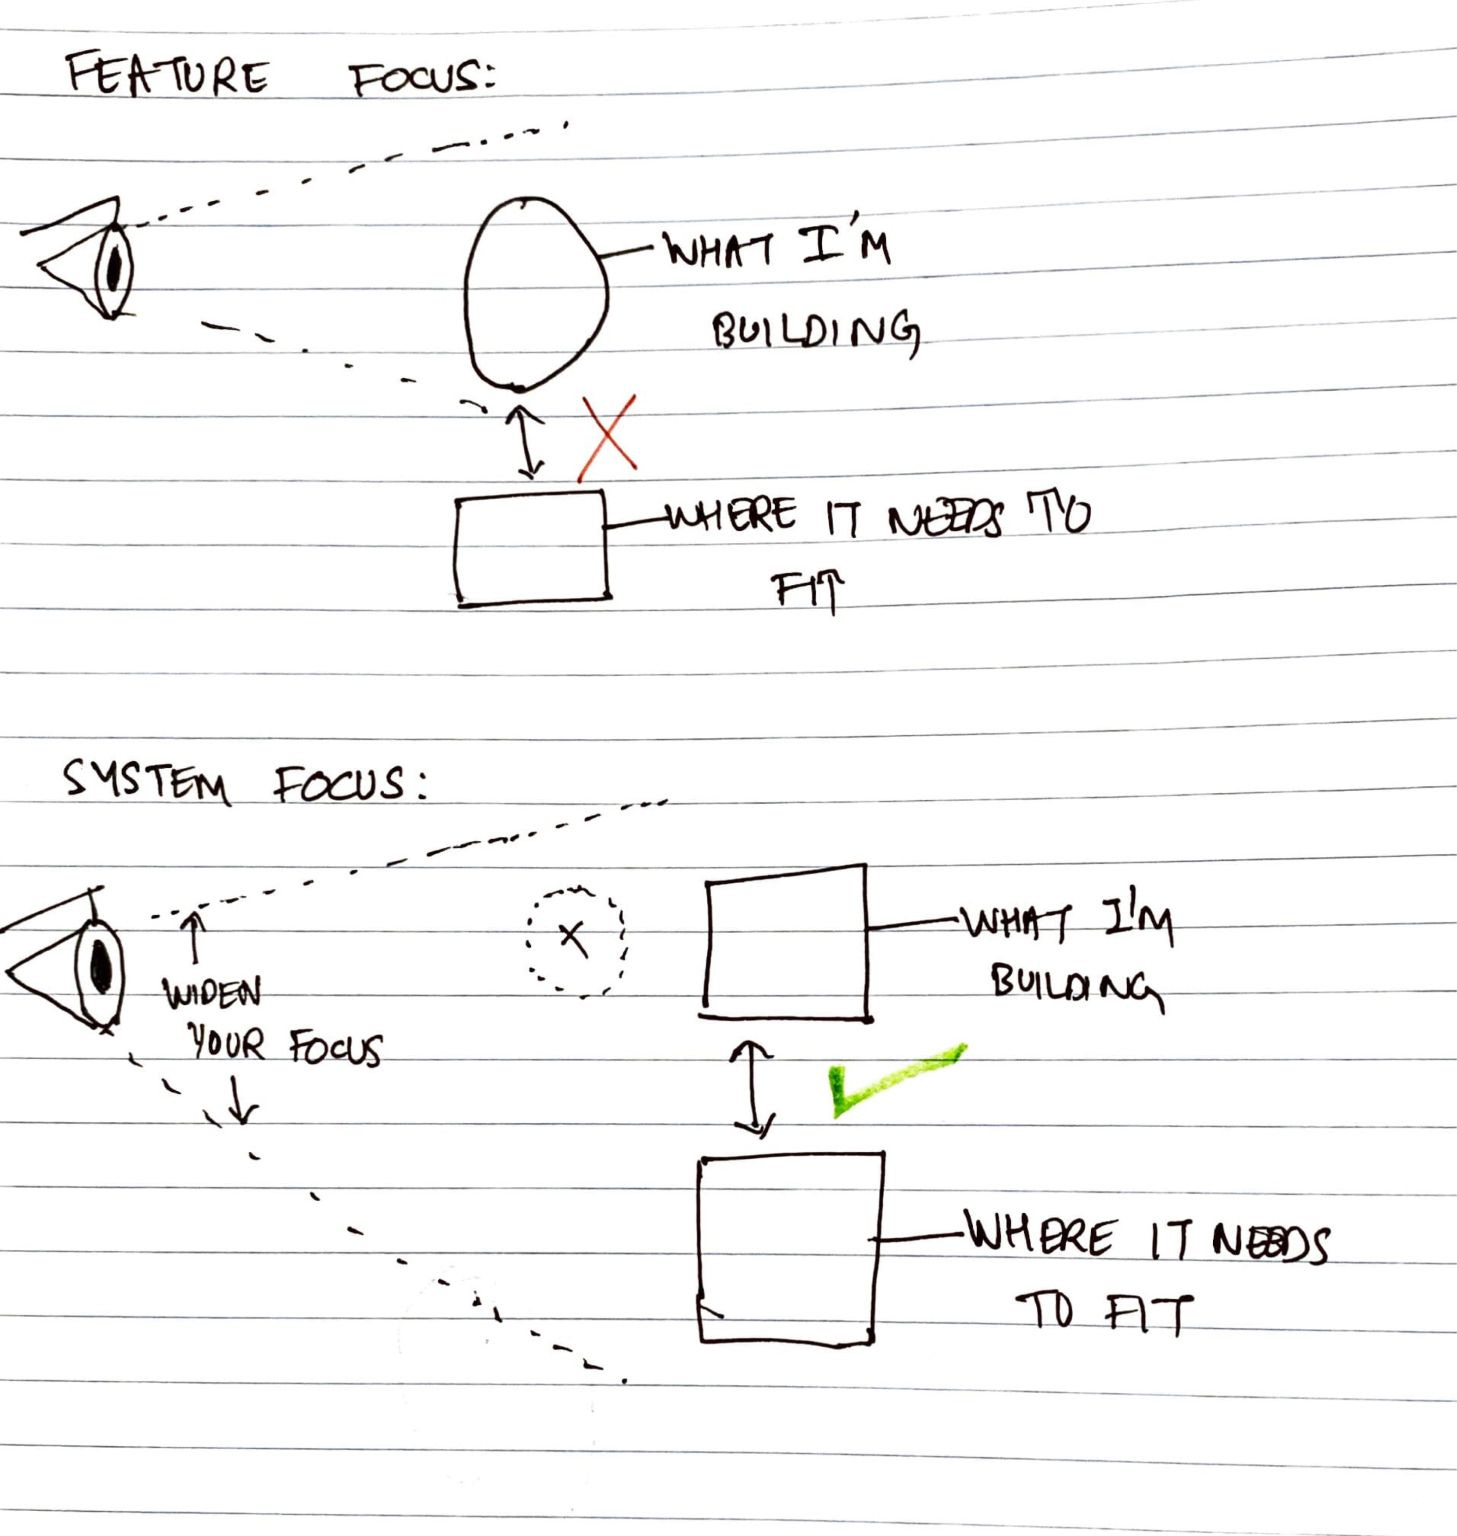 FEATURE FOCUS:
WHAT I'M
BUILDING
WHERE IT NEEDS TO
FIT
SYSTEM FOCUS:
WIDEN
YOUR FOCUS
WHAT I'M
BUILDING
WHERE IT NEEDS
TO FIT